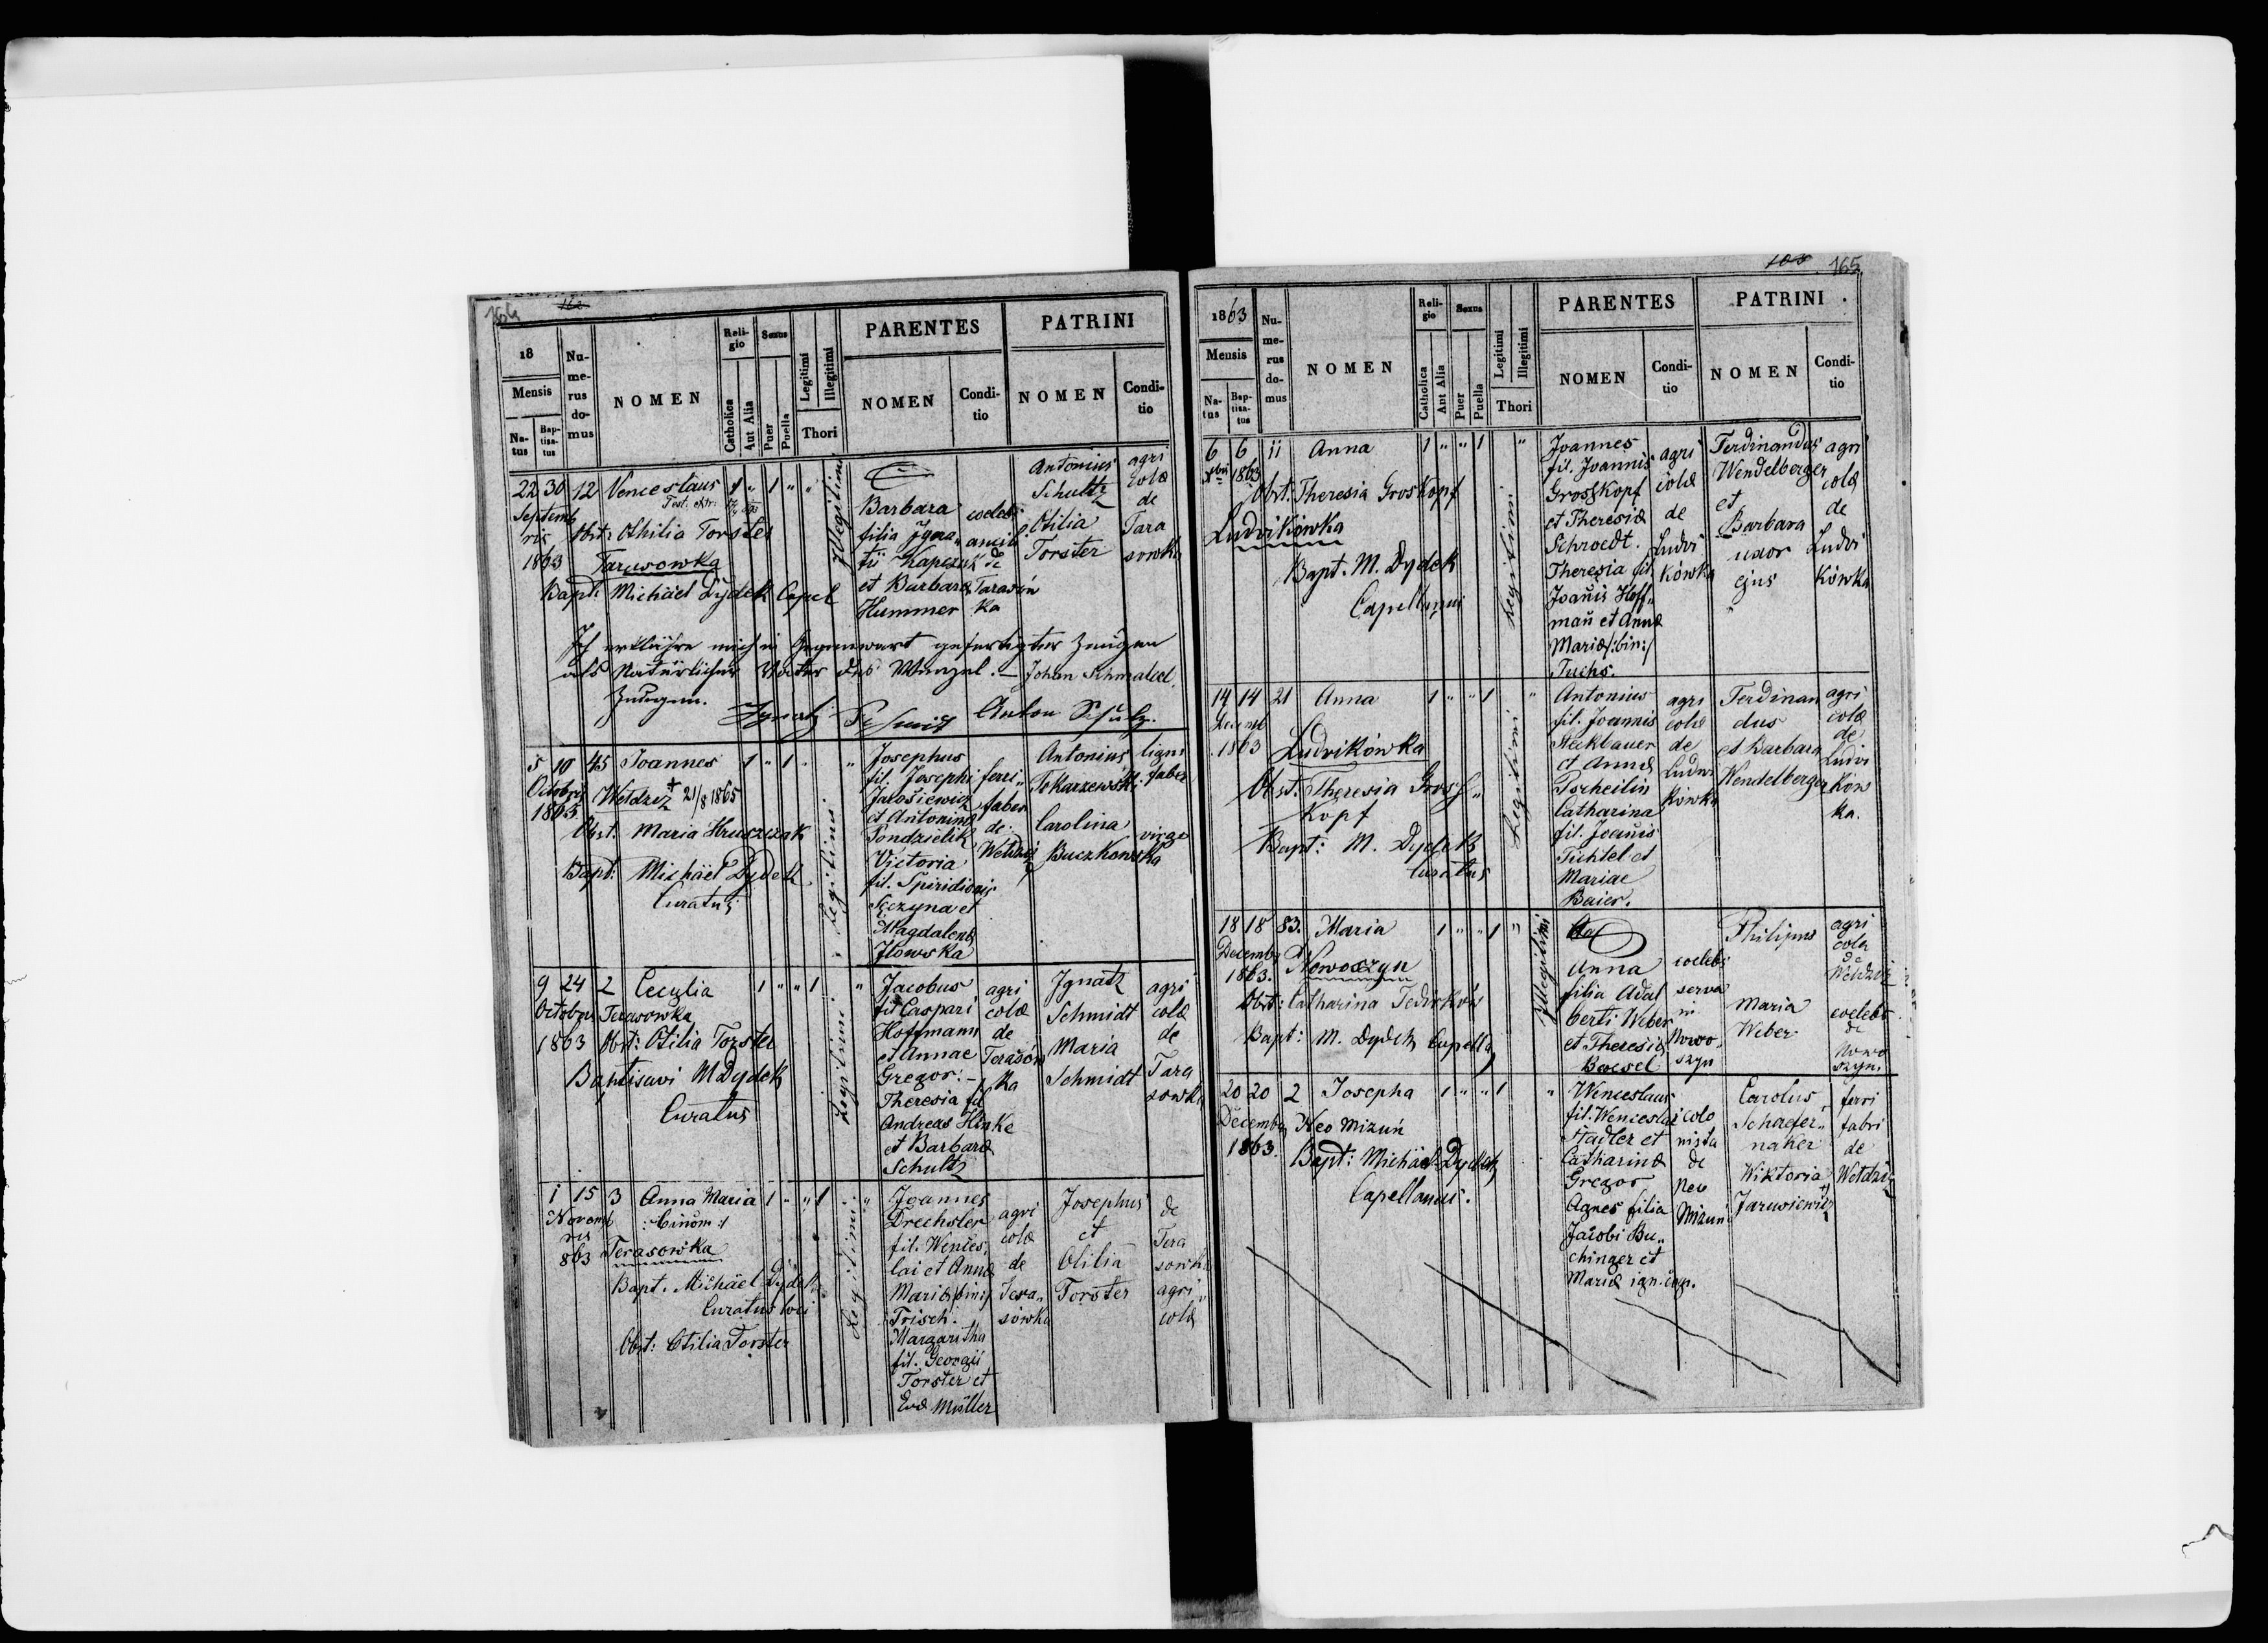 164
18
Mensis
Na-
tus
Bap-
tisa-
tus
Nu-
me-
rus
do-
mus
NOMEN
Reli-
gio
Catholica
Aut Alia
Sexus
Puer
Puella
Legitimi
Illegitimi
Thori
PARENTES
NOMEN
Condi-
tio
PATRINI
NOMEN
Condi-
tio
22 30 12 Venceslaus 1 " 1 " "
Septemb
ris
1863
Obst: Othilia Torster
Tarasowka
Bapt: Michäel Dydek Capel
Illegitimi
Barbara
filia Igna„
tii Kapczuk
et Barbara
Hummer
coelebs
ancilla
de
Tarasów
ka
Antonius
Schultz
Otilia
Torster
agri
colæ
de
Tara
sowka
Ich erklähre mich in Gegenwart gefertigter Zeugen
als Natürlicher Vater des Wenzel. – Johan Schmaled
Zeugen.
Ignatz Schmidt Anton Schulz.
5 10 45 Joannes 1 " 1 "
Octobris
1863
Wełdziz + 21/8 1865
Obst. Maria Hruszczak
Bapt: Michäel Dydek
Curatus
Legitimi
Josephus
fil. Josephi
Jarosiewicz
et Antonina
Pondzielik
Victoria
fil. Spiridionis
Sęczyna et
Magdalena
Ilowska
ferri„
faber
de
Wełdziz
Antonius
Tokarzewski
Carolina
Buczkowska
ligni
faber
virgo
9 24 2 Cecylia 1 " " 1 "
Octobris
1863
Terasowka
Obst: Otilia Torster
Baptisavi M Dydek
Curatus
Legitimi
Jacobus
fil Caspari
Hoffmann
et Annae
Gregor: –
Theresia fil
Andreas Hinke
et Barbara
Schultz
agri
colæ
de
Terasów
ka
Ignatz
Schmidt
Maria
Schmidt
agri
colæ
de
Tara
sowka
1 15 3 Anna Maria 1 " " 1 "
:binom:
Novemb
ris
863
Terasowka
Bapt. Michäel Dydek
Curatus loci
Obst: Otilia Torster
Legitimi
Joannes
Drechsler
fil. Wences„
lai et Anna
Maria /:bin:/
Frisch.
Margaritha
fil. Georgii
Torster et
Eva Müller
agri
colæ
de
Tera„
sówka
Josephus
et
Otilia
Torster
de
Tera
sowka
agri
colæ
165
1863
Mensis
Na-
tus
Bap-
tisa-
tus
Nu-
me-
rus
do-
mus
NOMEN
Reli-
gio
Catholica
Aut Alia
Sexus
Puer
Puella
Legitimi
Illegitimi
Thori
PARENTES
NOMEN
Condi-
tio
PATRINI
NOMEN
Condi-
tio
6 6 11 Anna 1 " " 1 "
1863
Obst. Theresia Groskopf
Ludwikówka
Bapt. M. Dydek
Capellanus
Legitimi
Joannes
fil. Joannis
Grosskopf
et Theresiæ
Schroedt.
Theresia fil
Joanis Hoff„
man et Anna
Mariæ /:bin:/
Fuchs.
agri
colæ
de
Ludvi
kówka
Ferdinandus
Wendelberger
et
Barbara
uxor
ejus
agri
colæ
de
Ludvi
kówka
14 14 21 Anna 1 " " 1 "
Decemb
1863
Ludvikówka
Obst. Theresia Gross„
Kopf
Bapt: M. Dydek
Curatus
Legitimi
Antonius
fil. Joannis
Steckbauer
et Anna
Porheilin
Catharina
fil. Joanis
Tichtel et
Mariae
Baier.
agri
colæ
de
Ludwi
kówka
Ferdinan
dus
et Barbara
Wendelberger
agri
colæ
de
Ludvi
ków
ka.
18 18 83. Maria 1 " " 1 "
Decemb
1863.
Nowoszyn
Obst: Catharina
Bapt: M. Dydek Capella
Illegitimi
Anna
filia Adal
berti Weber
et Theresia
Boesel
coelebs
serva
in
Nowo
szyn
Philipus
Maria
Weber
agri
cola
de
Wełdziz
coelebs
de
Nowo
szyn
20 20 2 Josepha 1 " " 1 "
Decemb
1863.
Neo Mizuń
Bapt: Michäel Dydek
Capellanus.
Wenceslaus
fil. Wenceslai
Stadler et
Catharina
Gregor
Agnes filia
Jacobi Bu„
chinger et
Mariæ ign. cogn.
colo
nista
de
Neo
Mizuń
Carolus
Schaefer„
naker
Wiktoria
Jarusiewicz
ferri
fabri
de
Wełdziz